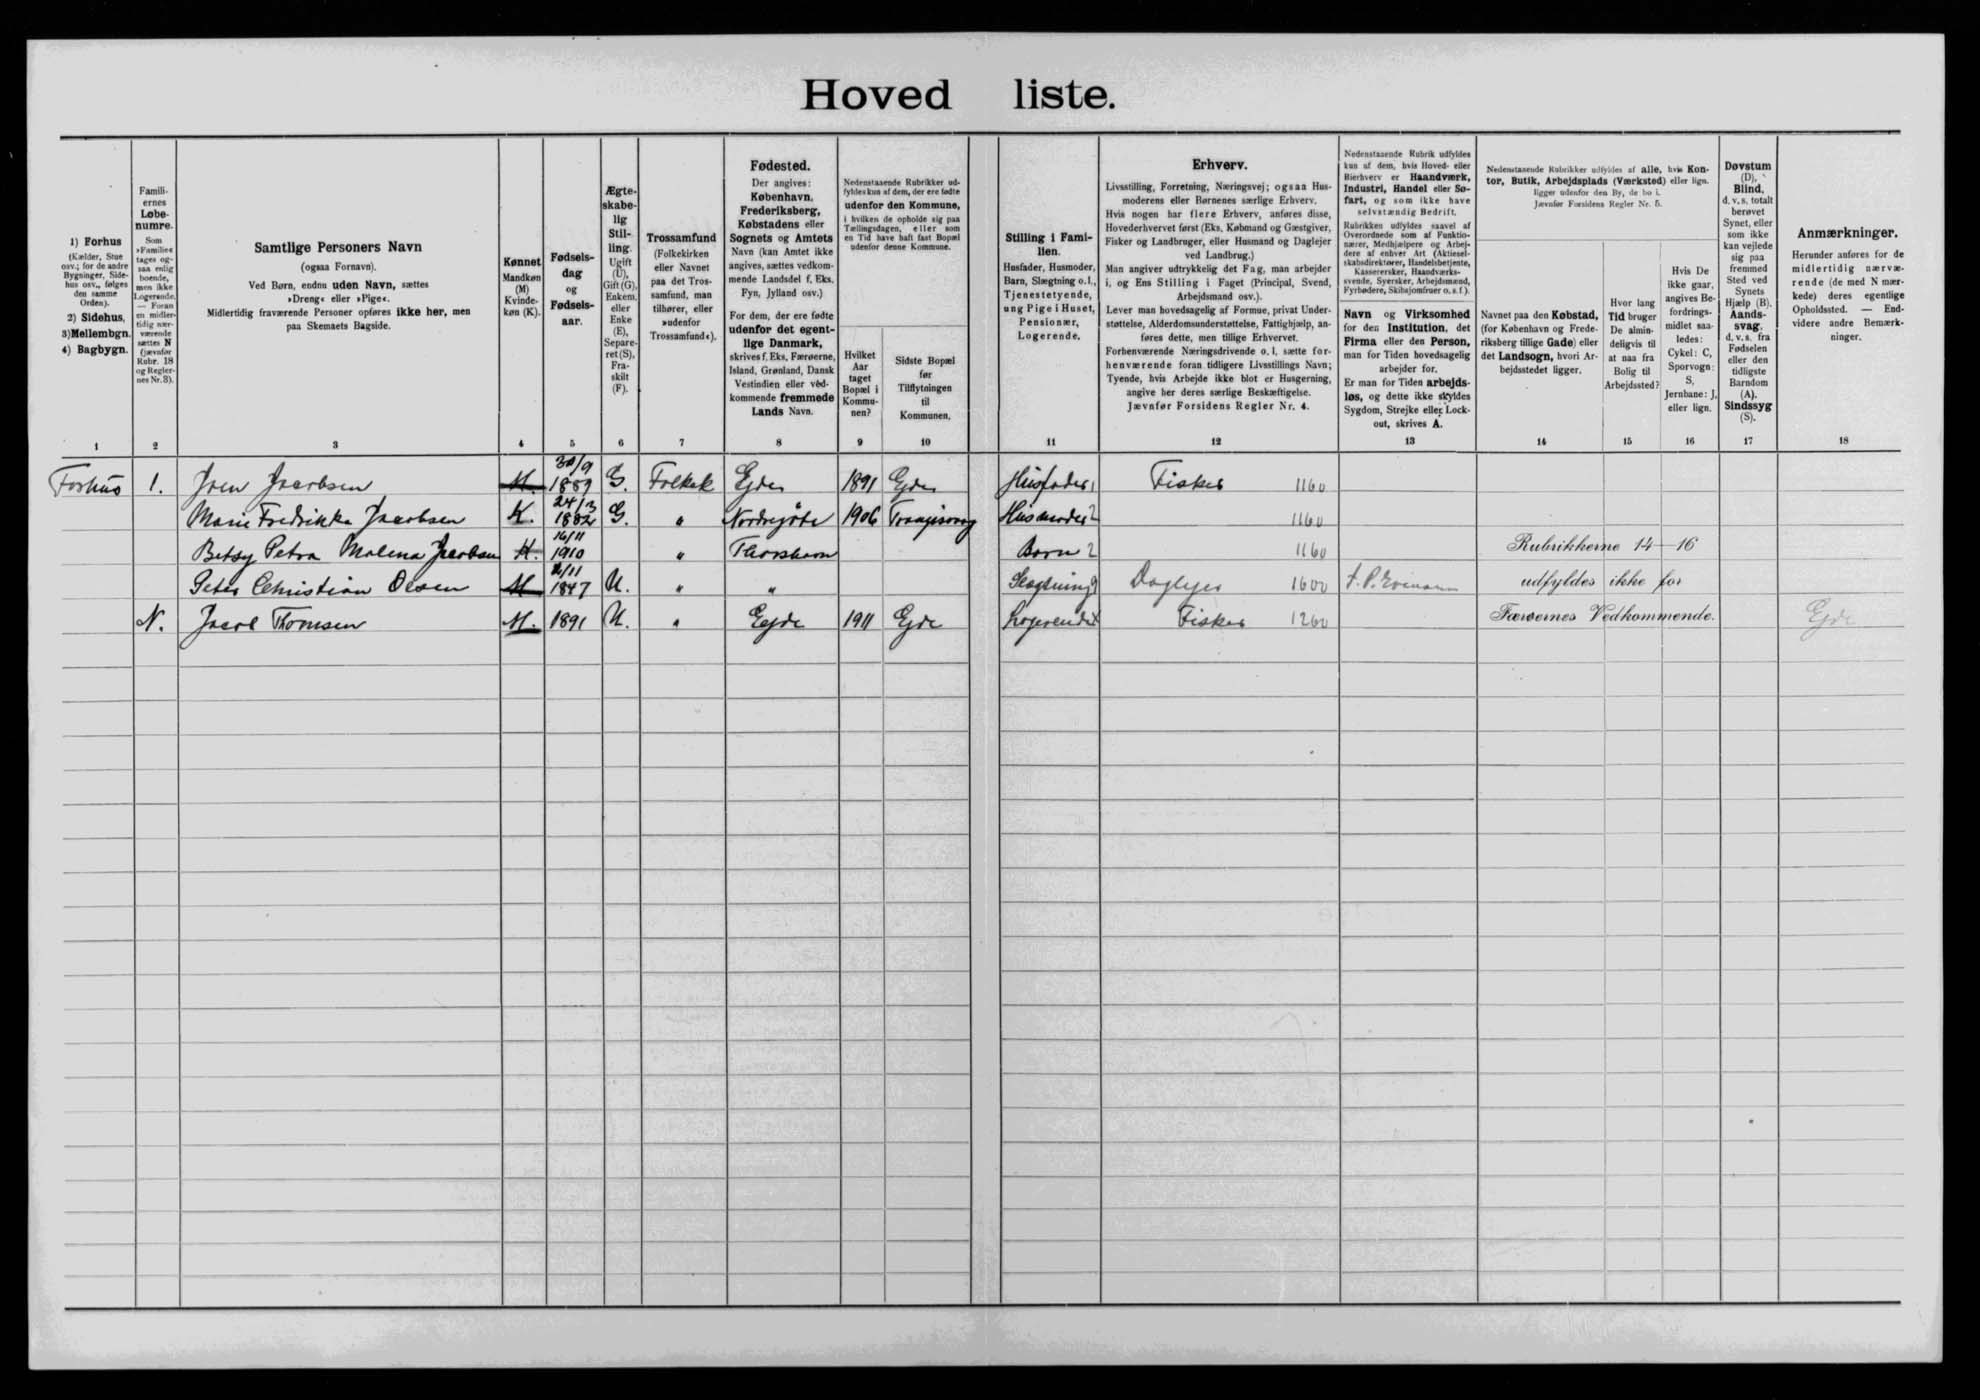 Hoved liste.
1) Forhus
(Kælder, Stue
osv.; for de andre
Bygninger, Side-
hus osv., følges
den samme
Orden).
2) Sidehus,
3) Mellembgn.
4) Bagbygn.
Famili-
ernes
Løbe-
numre.
Som
»Familie«
tages og-
saa enlig
boende,
men ikke
Logerende.
— Foran
en midler-
tidig nær-
værende
sættes N
(jævnfør
Rubr. 18
og Regler-
nes Nr. 3).
Samtlige Personers Navn
(ogsaa Fornavn).
Ved Børn, endnu uden Navn, sættes
»Dreng« eller »Pige«.
Midlertidig fraværende Personer opføres ikke her, men
paa Skemaets Bagside.
Kønnet
Mandkøn
(M)
Kvinde-
køn (K).
Fødsels-
dag
og
Fødsels-
aar.
Ægte-
skabe-
lig
Stil-
ling.
Ugift
(U),
Gift (G),
Enkem.
eller
Enke
(E),
Separe-
ret (S),
Fra-
skilt
(F).
Trossamfund
(Folkekirken
eller Navnet
paa det Tros-
samfund, man
tilhører, eller
»udenfor
Trossamfund«).
Fødested.
Der angives:
København,
Frederiksberg,
Købstadens eller
Sognets og Amtets
Navn (kan Amtet ikke
angives, sættes vedkom-
mende Landsdel f. Eks.
Fyn, Jylland osv.)
For dem, der ere fødte
udenfor det egent-
lige Danmark,
skrives f. Eks. Færøerne,
Island, Grønland, Dansk
Vestindien eller ved-
kommende fremmede
Lands Navn.
Nedenstaaende Rubrikker ud-
fyldes kun af dem, der ere fødte
udenfor den Kommune,
i hvilken de opholde sig paa
Tællingsdagen, eller som
en Tid have haft fast Bopæl
udenfor denne Kommune.
Hvilket
Aar
taget
Bopæl i
Kommu-
nen?
Sidste Bopæl
før
Tilflytningen
til
Kommunen.
Stilling i Fami-
lien.
Husfader, Husmoder,
Barn, Slægtning o.l.,
Tjenestetyende,
ung Pige i Huset,
Pensionær,
Logerende.
Erhverv.
Livsstilling, Forretning, Næringsvej; ogsaa Hus-
moderens eller Børnenes særlige Erhverv.
Hvis nogen har flere Erhverv, anføres disse,
Hovederhvervet først (Eks. Købmand og Gæstgiver,
Fisker og Landbruger, eller Husmand og Daglejer
ved Landbrug.)
Man angiver udtrykkelig det Fag, man arbejder
i, og Ens Stilling i Faget (Principal, Svend,
Arbejdsmand osv.).
Lever man hovedsagelig af Formue, privat Under-
støttelse, Alderdomsunderstøttelse, Fattighjælp, an-
føres dette, men tillige Erhvervet.
Forhenværende Næringsdrivende o. l. sætte for-
henværende foran tidligere Livsstillings Navn;
Tyende, hvis Arbejde ikke blot er Husgerning,
angive her deres særlige Beskæftigelse.
Jævnfør Forsidens Regler Nr. 4.
Nedenstaaende Rubrik udfyldes
kun af dem, hvis Hoved- eller
Bierhverv er Haandværk,
Industri, Handel eller Sø-
fart, og som ikke have
selvstændig Bedrift.
Rubrikken udfyldes saavel af
Overordnede som af Funktio-
nærer, Medhjælpere og Arbej-
dere af enhver Art (Aktiesel-
skabsdirektører, Handelsbetjente,
Kassererske, Haandværks-
svende, Syersker, Arbejdsmænd,
Fyrbødere, Skibsjomfruer o. s. f.).
Navn og Virksomhed
for den Institution, det
Firma eller den Person,
man for Tiden hovedsagelig
arbejder for.
Er man for Tiden arbejds-
løs, og dette ikke skyldes
Sygdom, Strejke eller Lock-
out, skrives A.
Nedenstaaende Rubrikker udfyldes af alle, hvis Kon-
tor, Butik, Arbejdsplads (Værksted) eller lign.
ligger udenfor den By, de bo i.
Jævnfør Forsidens Regler Nr. 5.
Navnet paa den Købstad,
(for København og Frede-
riksberg tillige Gade) eller
det Landsogn, hvori Ar-
bejdsstedet ligger.
Hvor lang
Tid bruger
De almin-
deligvis til
at naa fra
Bolig til
Arbejdssted?
Hvis De
ikke gaar,
angives Be-
fordrings-
midlet saa-
ledes:
Cykel: C,
Sporvogn:
S,
Jernbane: J,
eller lign.
Døvstum
(D),
Blind,
d. v. s. totalt
berøvet
Synet, eller
som ikke
kan vejlede
sig paa
fremmed
Sted ved
Synets
Hjælp (B),
Aands-
svag,
d. v. s. fra
Fødselen
eller den
tidligste
Barndom
(A).
Sindssyg
(S).
Anmærkninger.
Herunder anføres for de
midlertidig nærvæ-
rende (de med N mær-
kede) deres egentlige
Opholdssted. — End-
videre andre Bemærk-
ninger.
1 2 3 4 5 6 7 8 9 10 11 12 13 14 15 16 17 18
Forhus 1. Joen Jacobsen M. 30/9 1889 G. Folkek Ejde 1891 Ejde Husfader 1 Fisker 1160
Marie Fredrikke Jacobsen K. 24/3 1882 G. " Nordregöte 1906 Trangisvaag Husmoder 2 1160
Betsy Petra Malena Jacobsen K. 16/11 1910 " Thorshavn Barn 2 1160 Rubrikkerne 14—16
Peter Christian Olsen M 1847 U. " " Slægtning 9 Daglejer 1600 udfyldes ikke for
N. Jacob Thomsen M. 1891 U. " Ejde 1911 Ejde Logerende Fisker 1260 Færøernes Vedkommende. Ejde